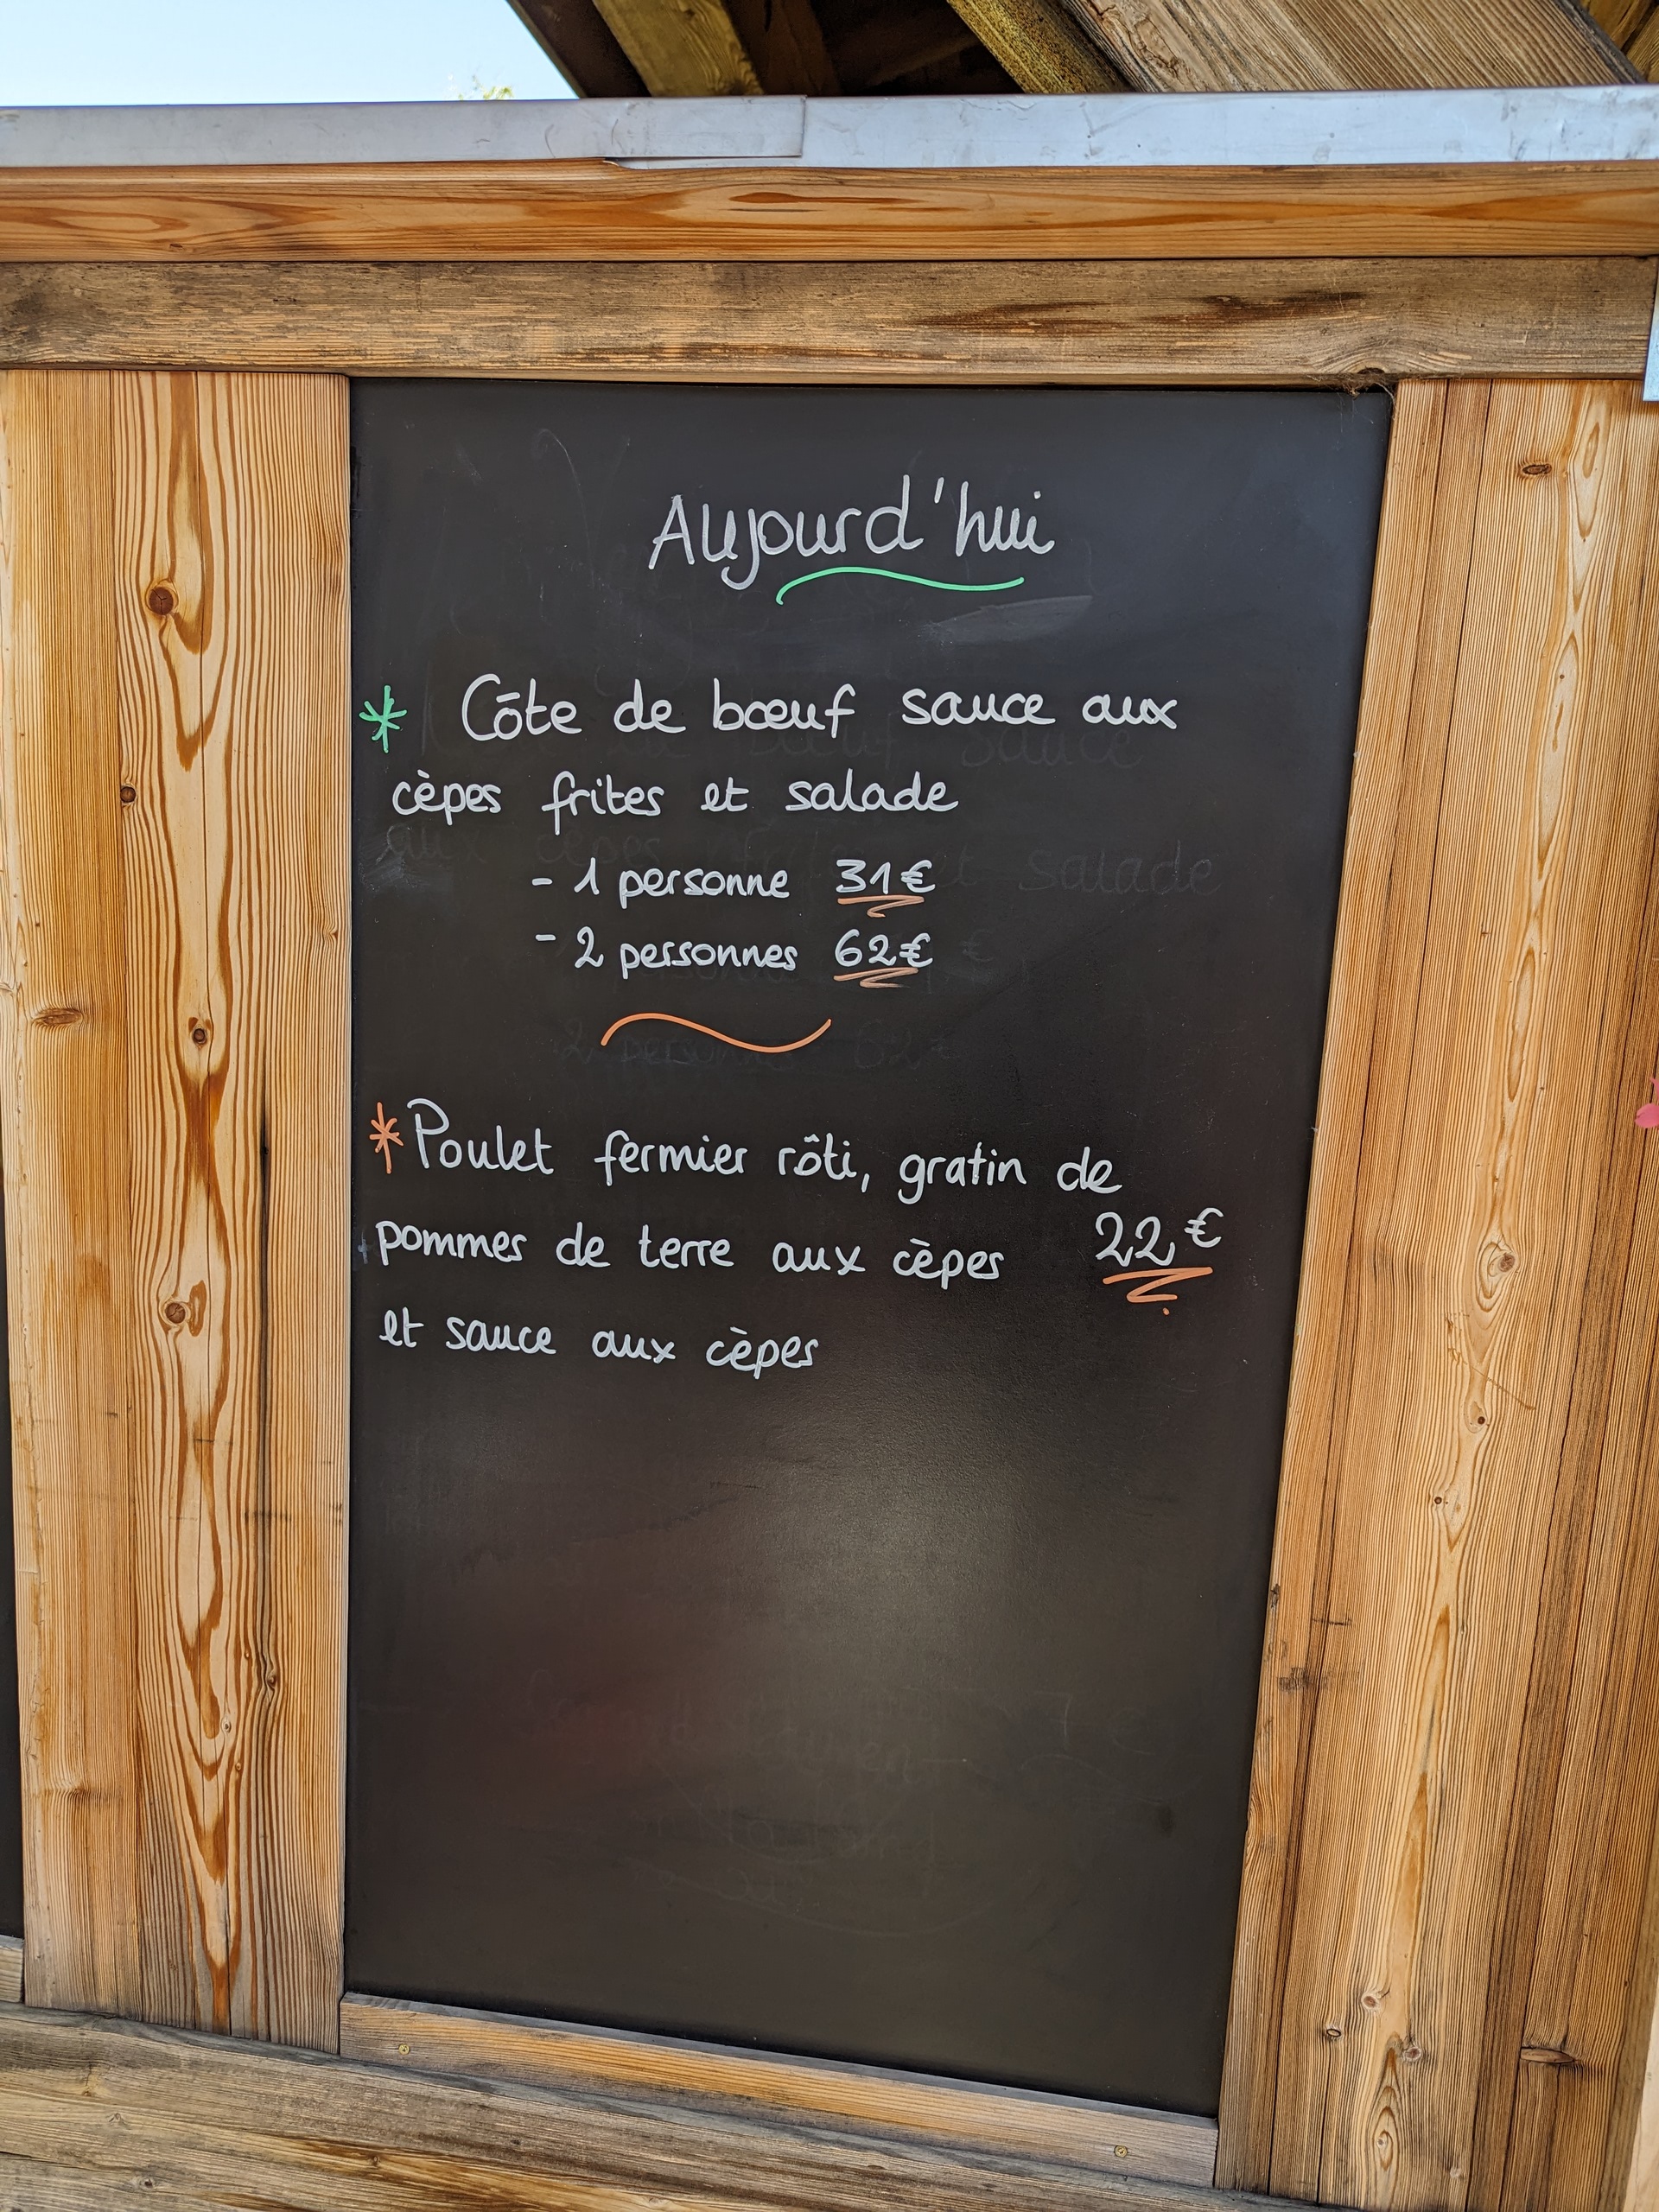 Aujourd'hui
* Côte de bœuf sauce aux
cèpes frites et salade
- 1 personne 31€
- 2 personnes 62€
* Poulet fermier rôti, gratin de
pommes de terre aux cèpes 22€
et sauce aux cèpes